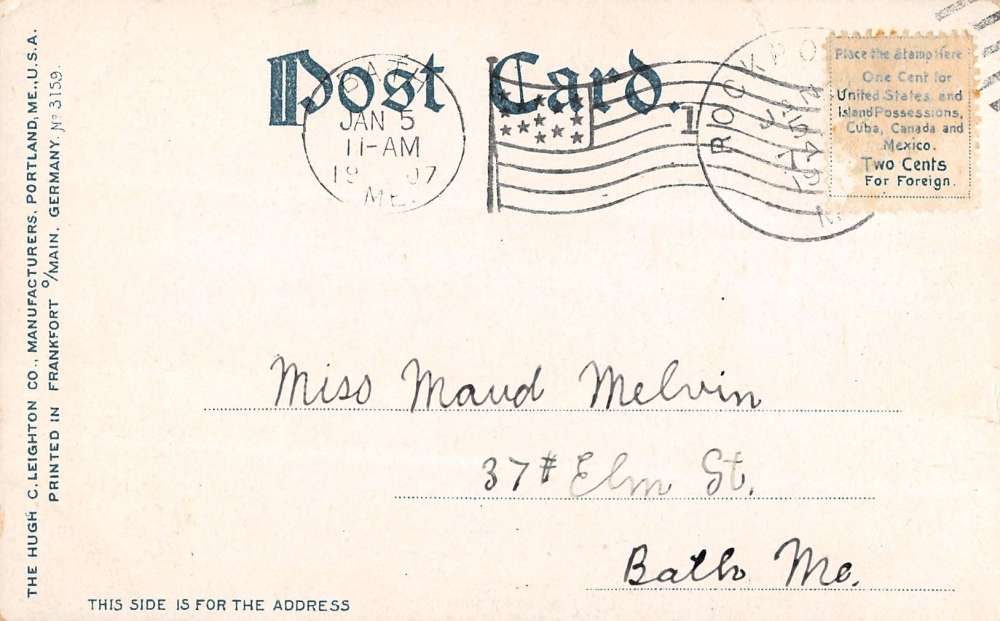 Post Card.
BATH
JAN 5
11-AM
19 07
ME.
1
ROCKPO
Place the Stamp Here
One Cent for
United States and
Island Possessions,
Cuba, Canada and
Mexico.
Two Cents
For Foreign.
Miss Maud Melvin
37# Elm St.
Bath Me.
THIS SIDE IS FOR THE ADDRESS
THE HUGH C. LEIGHTON CO., MANUFACTURERS, PORTLAND, ME., U.S.A.
PRINTED IN FRANKFORT O/MAIN, GERMANY. No 3159.